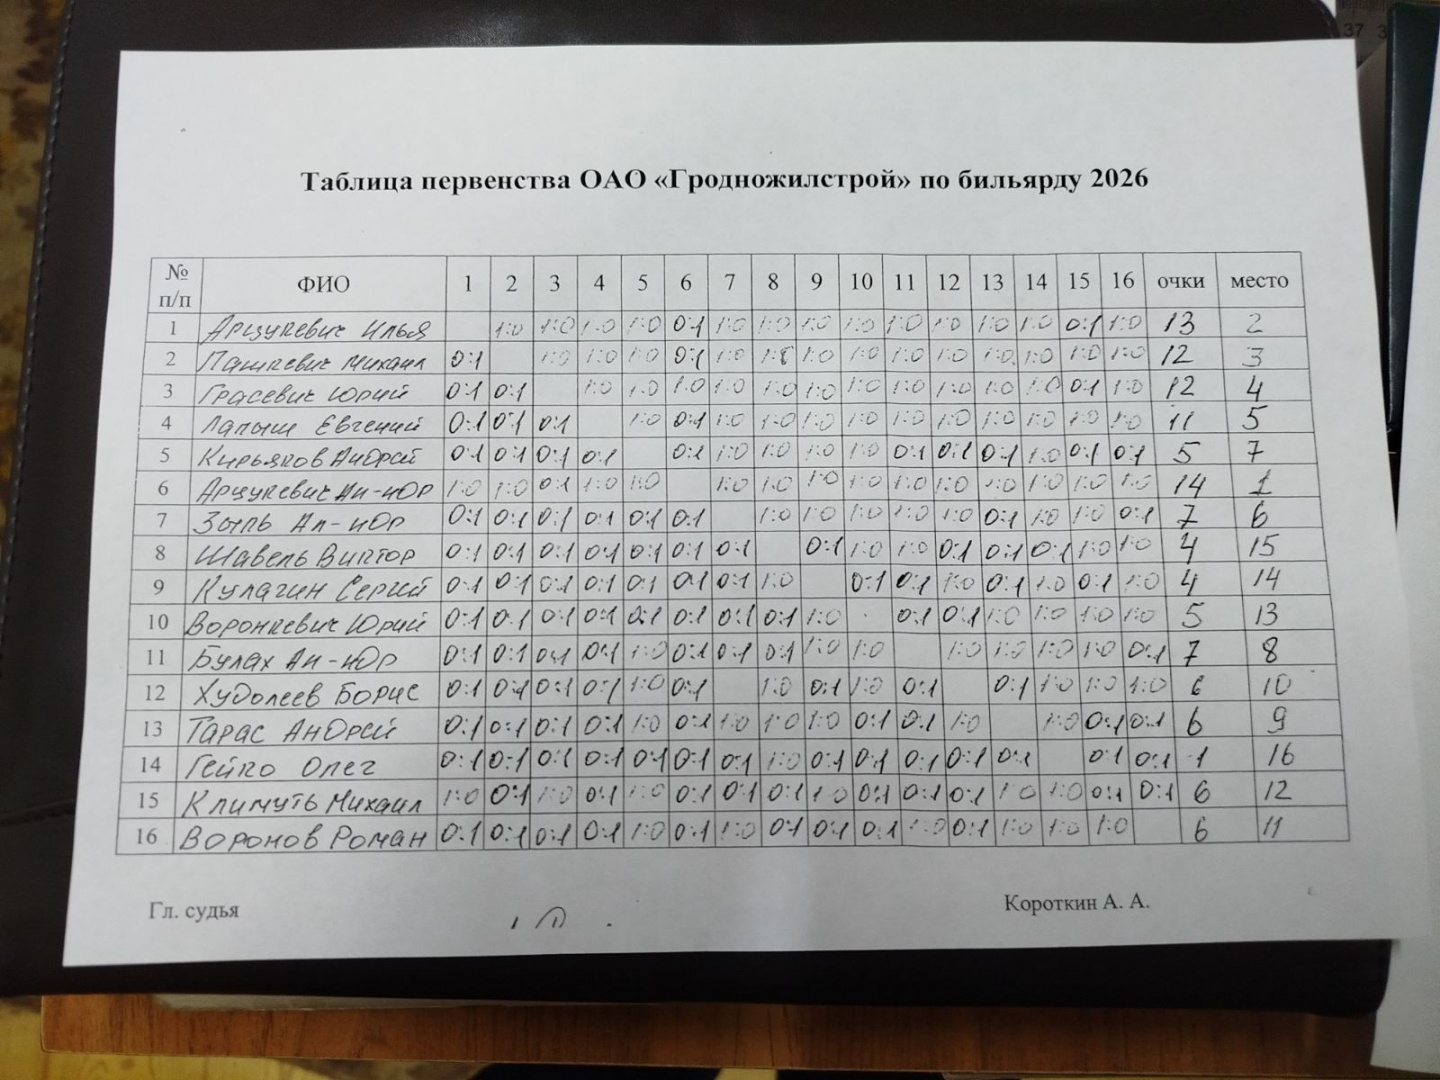 Таблица первенства ОАО «Гродножилстрой» по бильярду 2026
№ п/п ФИО 1 2 3 4 5 6 7 8 9 10 11 12 13 14 15 16 очки место
1 Арцукевич Илья 1:0 1:0 1:0 1:0 0:1 1:0 1:0 1:0 1:0 1:0 1:0 1:0 1:0 0:1 1:0 13 2
2 Пашкевич Михаил 0:1 1:0 1:0 1:0 0:1 1:0 1:0 1:0 1:0 1:0 1:0 1:0 1:0 1:0 12 3
3 Грасевич Юрий 0:1 0:1 1:0 1:0 1:0 1:0 1:0 1:0 1:0 1:0 1:0 1:0 1:0 0:1 1:0 12 4
4 Лапыш Евгений 0:1 0:1 0:1 1:0 0:1 1:0 1:0 1:0 1:0 1:0 1:0 1:0 1:0 1:0 1:0 11 5
5 Кирьяков Андрей 0:1 0:1 0:1 0:1 0:1 1:0 1:0 1:0 1:0 0:1 0:1 0:1 1:0 0:1 0:1 5 7
6 Арцукевич Ал-ндр 1:0 1:0 0:1 1:0 1:0 1:0 1:0 1:0 1:0 1:0 1:0 1:0 1:0 1:0 1:0 14 1
7 Зыль Ал-ндр 0:1 0:1 0:1 0:1 0:1 0:1 1:0 1:0 1:0 1:0 1:0 0:1 1:0 1:0 0:1 7 6
8 Шавель Виктор 0:1 0:1 0:1 0:1 0:1 0:1 0:1 0:1 1:0 1:0 0:1 0:1 0:1 1:0 1:0 4 15
9 Кулагин Сергий 0:1 0:1 0:1 0:1 0:1 0:1 0:1 1:0 0:1 0:1 1:0 0:1 1:0 0:1 1:0 4 14
10 Воронкевич Юрий 0:1 0:1 0:1 0:1 0:1 0:1 0:1 0:1 1:0 0:1 0:1 1:0 1:0 1:0 1:0 5 13
11 Булах Ал-ндр 0:1 0:1 0:1 0:1 1:0 0:1 0:1 0:1 1:0 1:0 1:0 1:0 1:0 1:0 0:1 7 8
12 Худолеев Борис 0:1 0:1 0:1 0:1 1:0 0:1 1:0 0:1 1:0 0:1 0:1 1:0 1:0 1:0 6 10
13 Тарас Андрей 0:1 0:1 0:1 0:1 1:0 0:1 1:0 1:0 1:0 0:1 0:1 1:0 1:0 0:1 0:1 6 9
14 Гейко Олег 0:1 0:1 0:1 0:1 0:1 0:1 0:1 1:0 0:1 0:1 0:1 0:1 0:1 0:1 0:1 1 16
15 Климуть Михаил 1:0 0:1 1:0 0:1 1:0 0:1 0:1 0:1 1:0 0:1 0:1 0:1 1:0 1:0 0:1 0:1 6 12
16 Воронов Роман 0:1 0:1 0:1 0:1 1:0 0:1 1:0 0:1 0:1 0:1 1:0 0:1 1:0 1:0 1:0 6 11
Гл. судья Короткин А. А.